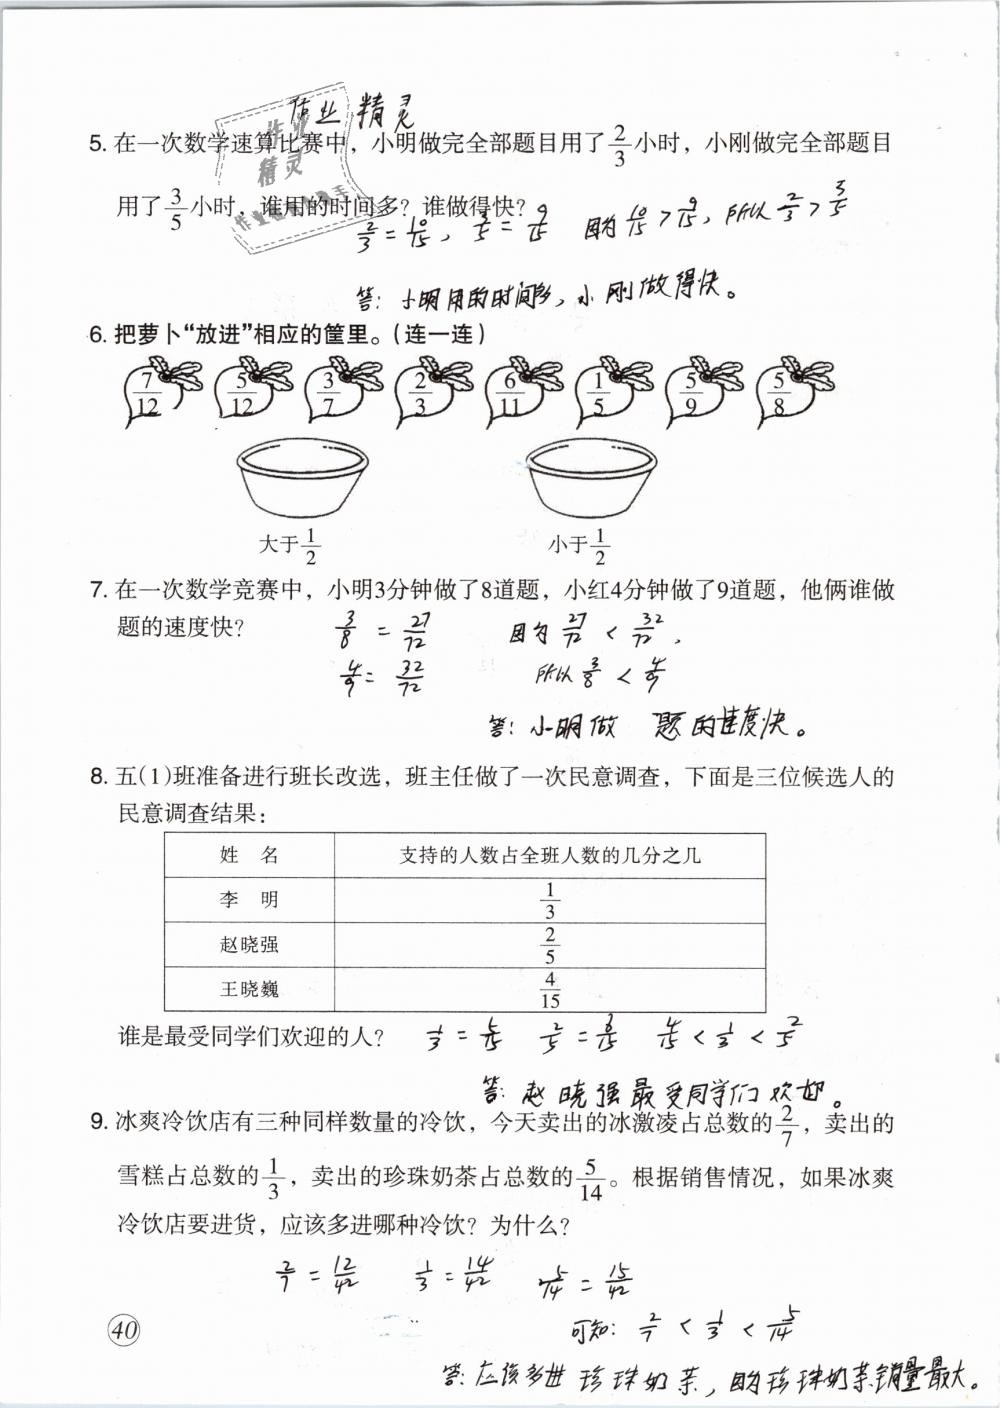 作业精灵
5. 在一次数学速算比赛中，小明做完全部题目用了2/3小时，小刚做完全部题目
用了3/5小时，谁用的时间多？谁做得快？
2/3=10/15，3/5=9/15 因为10/15>9/15，所以2/3>3/5
答：小明用的时间多，小刚做得快。
6. 把萝卜“放进”相应的筐里。(连一连)
7/12 5/12 3/7 2/3 6/11 1/5 5/9 5/8
大于1/2 小于1/2
7. 在一次数学竞赛中，小明3分钟做了8道题，小红4分钟做了9道题，他俩谁做
题的速度快？
3/8=27/72 因为27/72<32/72，
4/9=32/72 所以3/8<4/9
答：小明做 题的速度快。
8. 五(1)班准备进行班长改选，班主任做了一次民意调查，下面是三位候选人的
民意调查结果：
姓 名 支持的人数占全班人数的几分之几
李 明 1/3
赵晓强 2/5
王晓巍 4/15
谁是最受同学们欢迎的人？ 1/3=5/15 2/5=3/15 4/15<1/3<2/5
答：赵晓强最受同学们欢迎。
9. 冰爽冷饮店有三种同样数量的冷饮，今天卖出的冰激凌占总数的2/7，卖出的
雪糕占总数的1/3，卖出的珍珠奶茶占总数的5/14。根据销售情况，如果冰爽
冷饮店要进货，应该多进哪种冷饮？为什么？
2/7=12/42 1/3=14/42 5/14=15/42
可知：2/7<1/3<5/14
40
答：应该多进珍珠奶茶，因为珍珠奶茶销量最大。